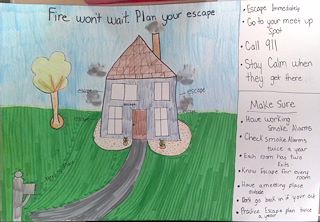 Fire wont wait. Plan your escape
escape
escape
escape
escape
escape
• Escape Immediately
• Go to your meet up
Spot
• Call 911
• Stay Calm when
they get there
Make Sure
• Have working
Smoke Alarms
• Check smoke Alarms
twice a year
• Each room has two
Exits
• Know Escape for every
room
• Have a meeting place
outside
• Dont go back in if your out
• Practice Escape plan twice
a year